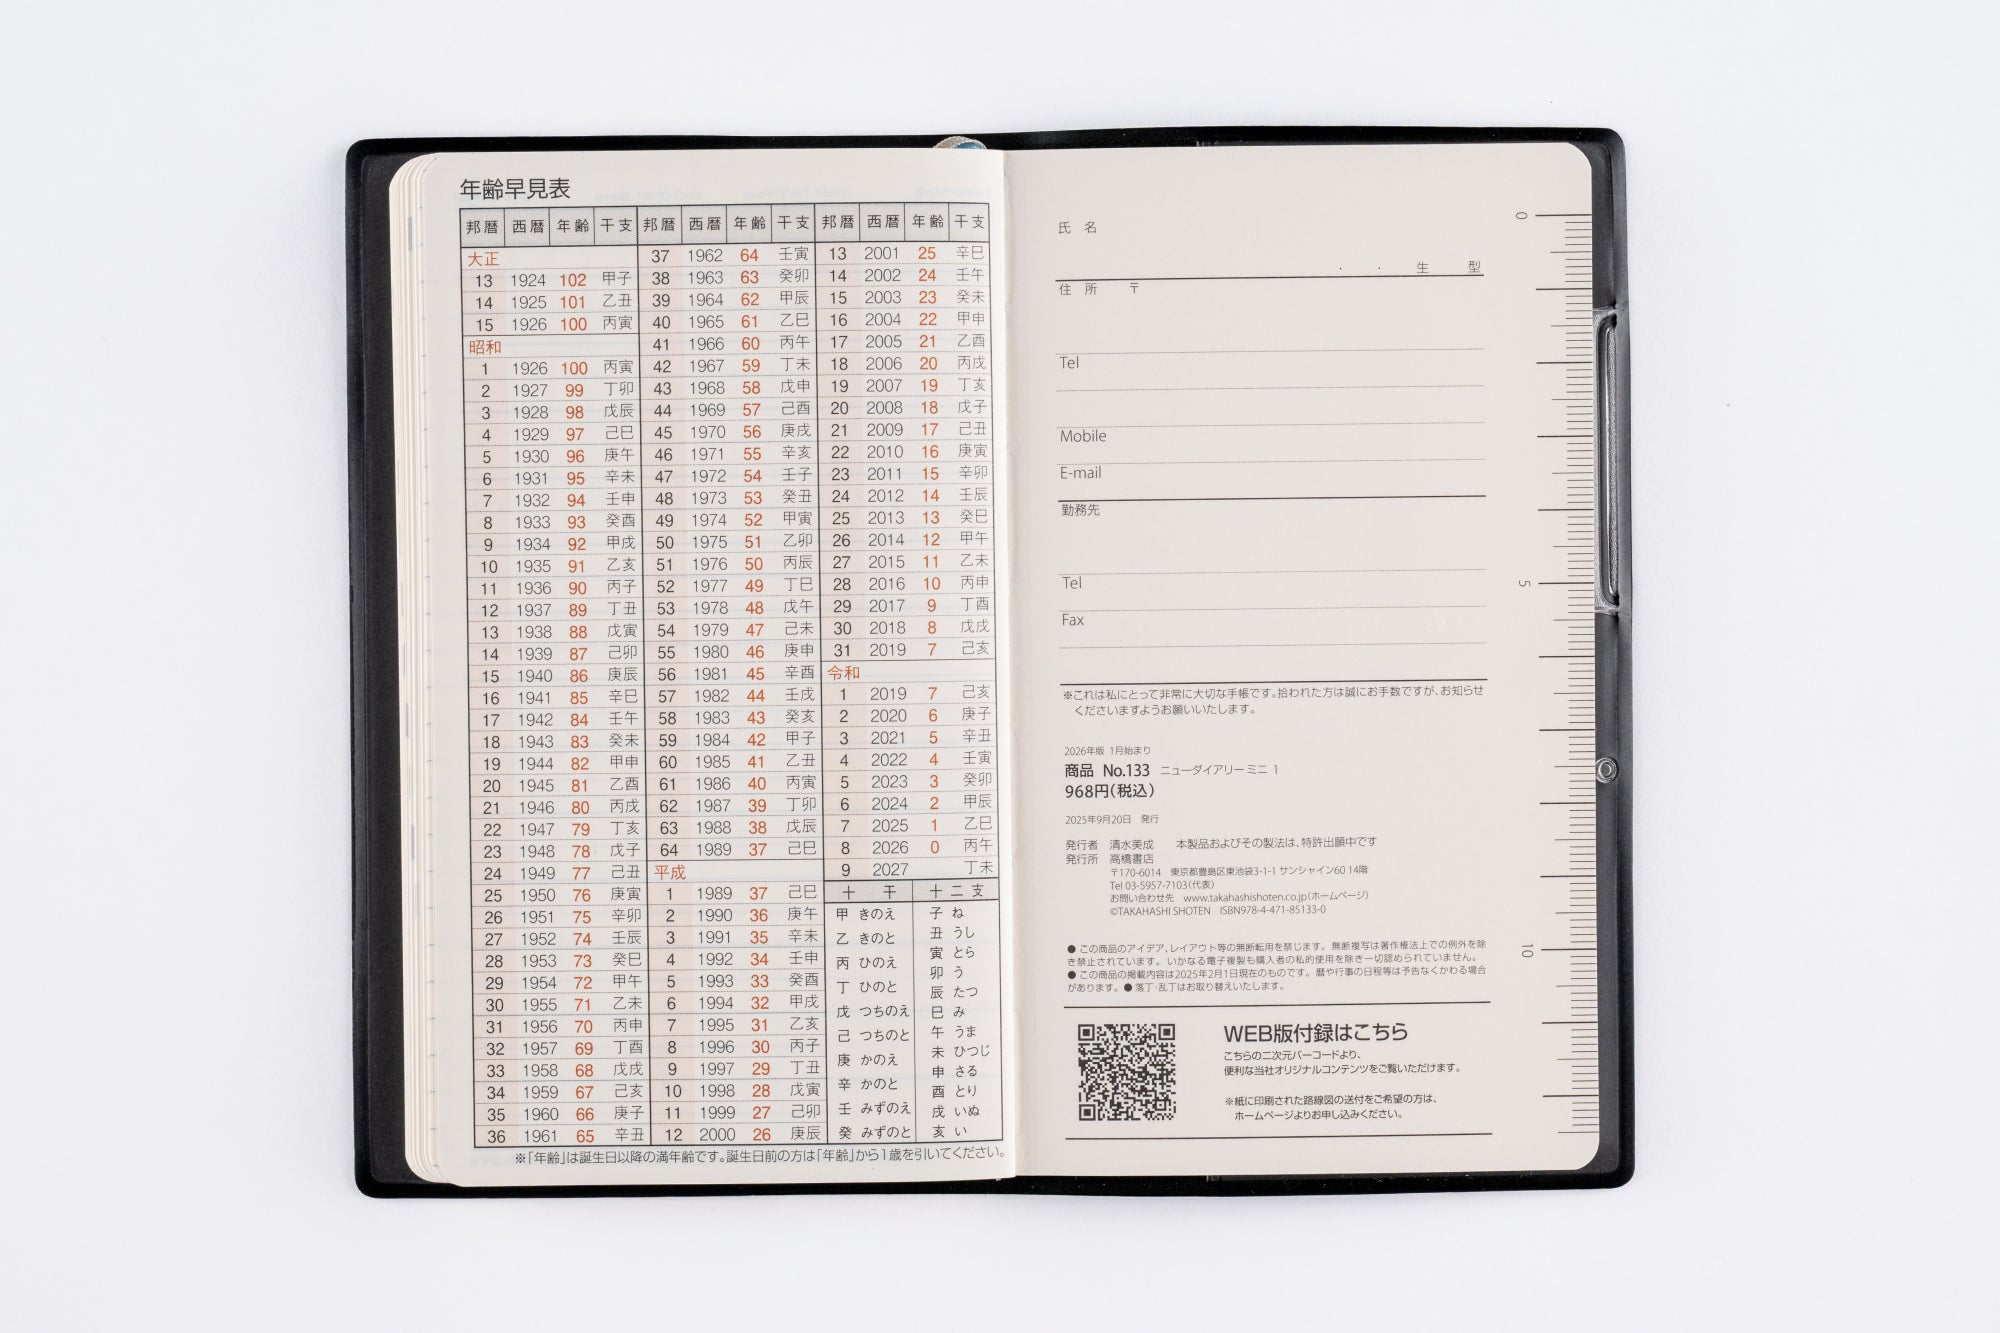 年齢早見表
邦暦 西暦 年齢 干支
大正
13 1924 102 甲子
14 1925 101 乙丑
15 1926 100 丙寅
昭和
1 1926 100 丙寅
2 1927 99 丁卯
3 1928 98 戊辰
4 1929 97 己巳
5 1930 96 庚午
6 1931 95 辛未
7 1932 94 壬申
8 1933 93 癸酉
9 1934 92 甲戌
10 1935 91 乙亥
11 1936 90 丙子
12 1937 89 丁丑
13 1938 88 戊寅
14 1939 87 己卯
15 1940 86 庚辰
16 1941 85 辛巳
17 1942 84 壬午
18 1943 83 癸未
19 1944 82 甲申
20 1945 81 乙酉
21 1946 80 丙戌
22 1947 79 丁亥
23 1948 78 戊子
24 1949 77 己丑
25 1950 76 庚寅
26 1951 75 辛卯
27 1952 74 壬辰
28 1953 73 癸巳
29 1954 72 甲午
30 1955 71 乙未
31 1956 70 丙申
32 1957 69 丁酉
33 1958 68 戊戌
34 1959 67 己亥
35 1960 66 庚子
36 1961 65 辛丑
邦暦 西暦 年齢 干支
37 1962 64 壬寅
38 1963 63 癸卯
39 1964 62 甲辰
40 1965 61 乙巳
41 1966 60 丙午
42 1967 59 丁未
43 1968 58 戊申
44 1969 57 己酉
45 1970 56 庚戌
46 1971 55 辛亥
47 1972 54 壬子
48 1973 53 癸丑
49 1974 52 甲寅
50 1975 51 乙卯
51 1976 50 丙辰
52 1977 49 丁巳
53 1978 48 戊午
54 1979 47 己未
55 1980 46 庚申
56 1981 45 辛酉
57 1982 44 壬戌
58 1983 43 癸亥
59 1984 42 甲子
60 1985 41 乙丑
61 1986 40 丙寅
62 1987 39 丁卯
63 1988 38 戊辰
64 1989 37 己巳
平成
1 1989 37 己巳
2 1990 36 庚午
3 1991 35 辛未
4 1992 34 壬申
5 1993 33 癸酉
6 1994 32 甲戌
7 1995 31 乙亥
8 1996 30 丙子
9 1997 29 丁丑
10 1998 28 戊寅
11 1999 27 己卯
12 2000 26 庚辰
邦暦 西暦 年齢 干支
13 2001 25 辛巳
14 2002 24 壬午
15 2003 23 癸未
16 2004 22 甲申
17 2005 21 乙酉
18 2006 20 丙戌
19 2007 19 丁亥
20 2008 18 戊子
21 2009 17 己丑
22 2010 16 庚寅
23 2011 15 辛卯
24 2012 14 壬辰
25 2013 13 癸巳
26 2014 12 甲午
27 2015 11 乙未
28 2016 10 丙申
29 2017 9 丁酉
30 2018 8 戊戌
31 2019 7 己亥
令和
1 2019 7 己亥
2 2020 6 庚子
3 2021 5 辛丑
4 2022 4 壬寅
5 2023 3 癸卯
6 2024 2 甲辰
7 2025 1 乙巳
8 2026 0 丙午
9 2027 丁未
十干
甲 きのえ
乙 きのと
丙 ひのえ
丁 ひのと
戊 つちのえ
己 つちのと
庚 かのえ
辛 かのと
壬 みずのえ
癸 みずのと
十二支
子 ね
丑 うし
寅 とら
卯 う
辰 たつ
巳 み
午 うま
未 ひつじ
申 さる
酉 とり
戌 いぬ
亥 い
※「年齢」は誕生日以降の満年齢です。誕生日前の方は「年齢」から1歳を引いてください。
氏名
・ ・ 生 型
住所 〒
Tel
Mobile
E-mail
勤務先
Tel
Fax
※これは私にとって非常に大切な手帳です。拾われた方は誠にお手数ですが、お知らせ
くださいますようお願いいたします。
2026年版 1月始まり
商品 No.133 ニューダイアリー ミニ 1
968円(税込)
2025年9月20日 発行
発行者 清水美成 本製品およびその製法は、特許出願中です
発行所 高橋書店
〒170-6014 東京都豊島区東池袋3-1-1 サンシャイン60 14階
Tel 03-5957-7103(代表)
お問い合わせ先 www.takahashishoten.co.jp(ホームページ)
©TAKAHASHI SHOTEN ISBN978-4-471-85133-0
● この商品のアイデア、レイアウト等の無断転用を禁じます。無断複写は著作権法上での例外を除
き禁止されています。いかなる電子複製も購入者の私的使用を除き一切認められていません。
● この商品の掲載内容は2025年2月1日現在のものです。暦や行事の日程等は予告なくかわる場合
があります。● 落丁・乱丁はお取り替えいたします。
WEB版付録はこちら
こちらの二次元バーコードより、
便利な当社オリジナルコンテンツをご覧いただけます。
※紙に印刷された路線図の送付をご希望の方は、
ホームページよりお申し込みください。
0
5
10